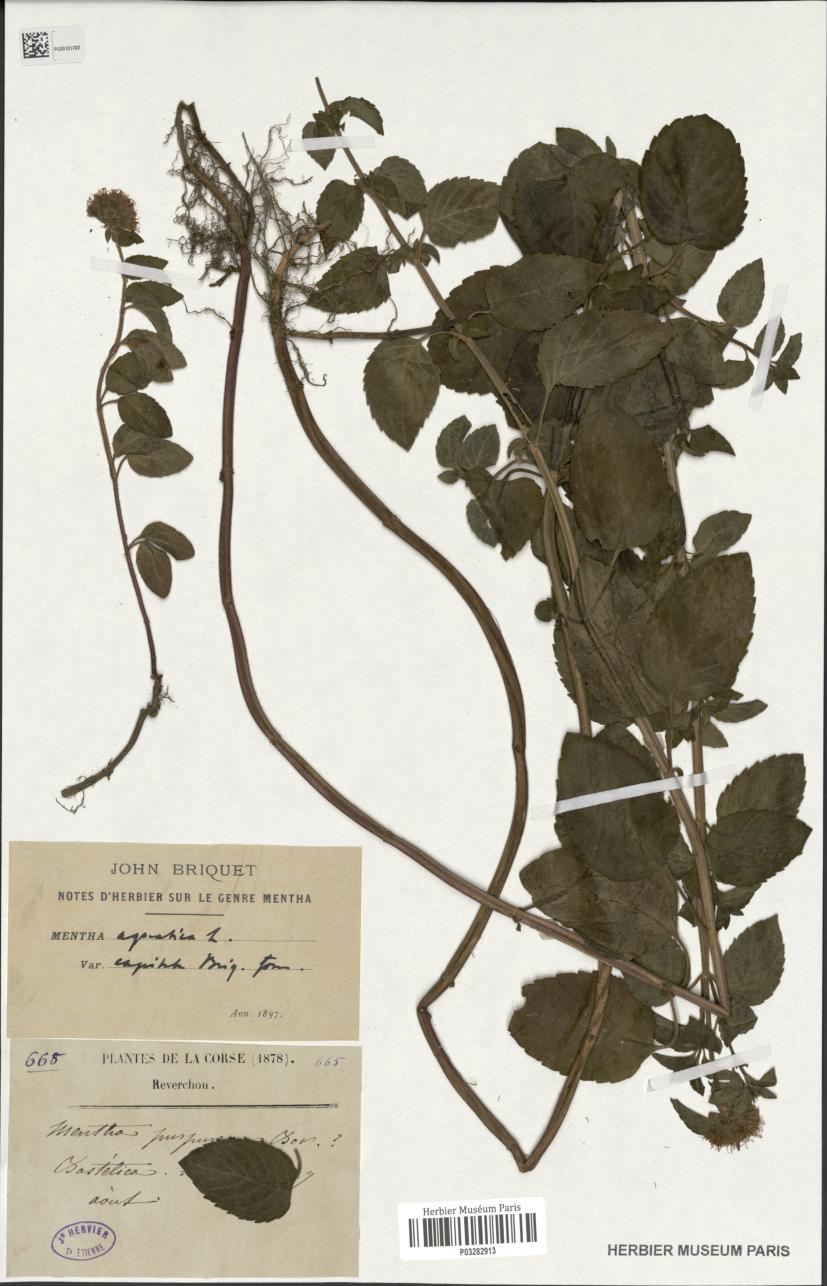 JOHN BRIQUET
NOTES D'HERBIER SUR LE GENRE MENTHA
MENTHA aquatica L.
Var. capitata Briq. form.
Ann. 1897.
665 PLANTES DE LA CORSE (1878). 665
Reverchon.
Mentha Bor. ?
Bastélica.
août
Jh HERVIER
St ETIENNE
Herbier Muséum Paris
P03282913
HERBIER MUSEUM PARIS